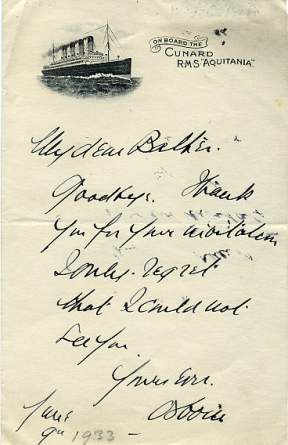 ON BOARD THE
CUNARD
RMS "AQUITANIA"
My dear
Goodbye. Thank
you for your invitation
I only regret
that I could not
see you
Yours ever
June
9th 1933